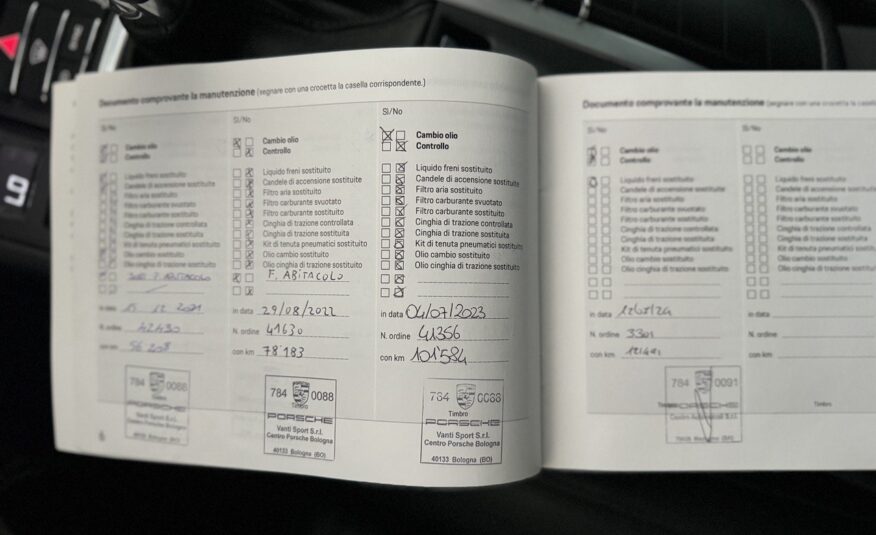 Documento comprovante la manutenzione (segnare con una crocetta la casella corrispondente.)
Si/No
Cambio olio
Controllo
Liquido freni sostituito
Candele di accensione sostituite
Filtro aria sostituito
Filtro carburante svuotato
Filtro carburante sostituito
Cinghia di trazione controllata
Cinghia di trazione sostituita
Kit di tenuta pneumatici sostituito
Olio cambio sostituito
Olio cinghia di trazione sostituito
ABITACOLO
in data 15 12 2021
N. ordine 42430
con km 56 208
784 0088
Timbro
Si/No
Cambio olio
Controllo
Liquido freni sostituito
Candele di accensione sostituite
Filtro aria sostituito
Filtro carburante svuotato
Filtro carburante sostituito
Cinghia di trazione controllata
Cinghia di trazione sostituita
Kit di tenuta pneumatici sostituito
Olio cambio sostituito
Olio cinghia di trazione sostituito
F. ABITACOLO
in data 29/08/2022
N. ordine 41630
con km 78'183
784 0088
Timbro
PORSCHE
Vanti Sport S.r.l.
Centro Porsche Bologna
40133 Bologna (BO)
Si/No
Cambio olio
Controllo
Liquido freni sostituito
Candele di accensione sostituite
Filtro aria sostituito
Filtro carburante svuotato
Filtro carburante sostituito
Cinghia di trazione controllata
Cinghia di trazione sostituita
Kit di tenuta pneumatici sostituito
Olio cambio sostituito
Olio cinghia di trazione sostituito
in data 04/07/2023
N. ordine 41356
con km 101'584
784 0088
Timbro
PORSCHE
Vanti Sport S.r.l.
Centro Porsche Bologna
40133 Bologna (BO)
Documento comprovante la manutenzione (segnare con una crocetta la casella
Si/No
Cambio olio
Controllo
Liquido freni sostituito
Candele di accensione sostituite
Filtro aria sostituito
Filtro carburante svuotato
Filtro carburante sostituito
Cinghia di trazione controllata
Cinghia di trazione sostituita
Kit di tenuta pneumatici sostituito
Olio cambio sostituito
Olio cinghia di trazione sostituito
in data
N. ordine 3301
con km
784 0091
PORSCHE
Si/No
Cambio olio
Controllo
Liquido freni sostituito
Candele di accensione sostituite
Filtro aria sostituito
Filtro carburante svuotato
Filtro carburante sostituito
Cinghia di trazione controllata
Cinghia di trazione sostituita
Kit di tenuta pneumatici
Olio cambio sostituito
Olio cinghia di trazione
in data
N. ordine
con km
Timbro
9